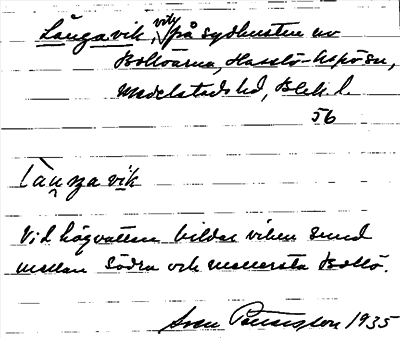 Långavik, vik, på sydkusten av
Bollöarna, Hasslö-Aspö sn,
Medelstads hd, Blek. l.
56
làŋgavik
Vid högvatten bildar viken sund
mellan Södra och mellersta Bollö.
Sven Benson 1935